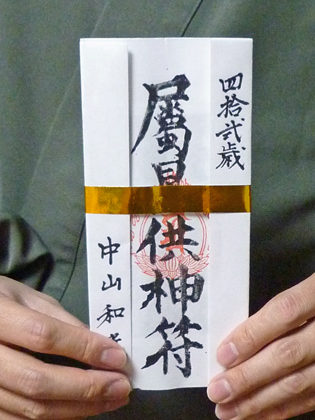 四拾弐歳
屬星供神符
中山和